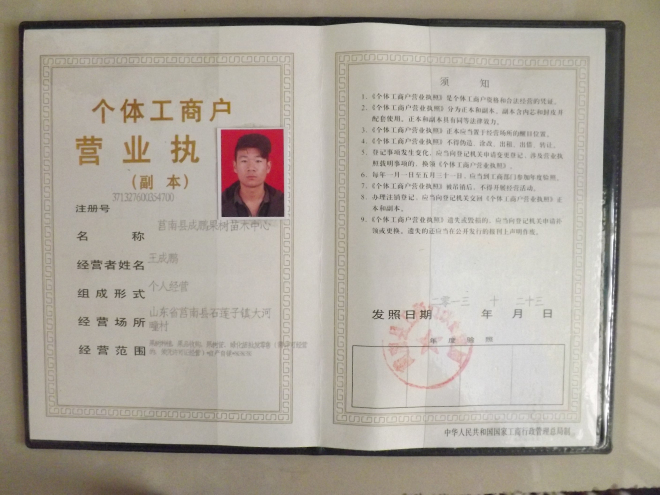 个体工商户
营业执
(副 本)
注册号 371327600354700
名 称 莒南县成鹏果树苗木中心
经营者姓名 王成鹏
组成形式 个人经营
经营场所 山东省莒南县石莲子镇大河
疃村
经营范围
须 知
1、《个体工商户营业执照》是个体工商户资格和合法经营的凭证。
2、《个体工商户营业执照》分为正本和副本，副本含内芯和封皮并
配套使用。正本和副本具有同等法律效力。
3、《个体工商户营业执照》正本应当置于经营场所的醒目位置。
4、《个体工商户营业执照》不得伪造、涂改、出租、出借、转让。
5、登记事项发生变化，应当向登记机关申请变更登记，涉及营业执
照载明事项的，换领《个体工商户营业执照》。
6、每年一月一日至五月三十一日，应当到工商部门参加年度验照。
7、《个体工商户营业执照》被吊销后，不得开展经营活动。
8、办理注销登记，应当向登记机关交回《个体工商户营业执照》正
本和副本。
9、《个体工商户营业执照》遗失或毁损的，应当向登记机关申请补
领或更换。遗失的还应当在公开发行的报刊上声明作废。
发照日期 二零一三 年 十 月 二十三 日
年 度 验 照
中华人民共和国国家工商行政管理总局制